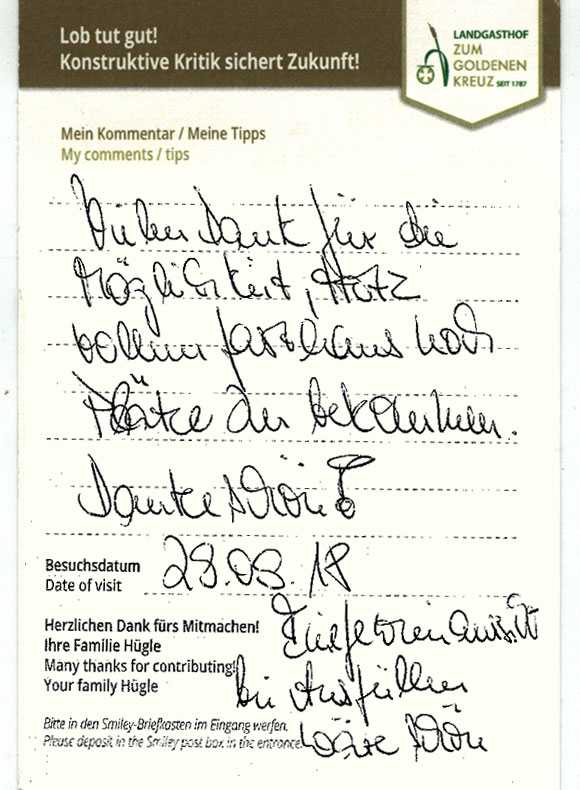 Lob tut gut!
Konstruktive Kritik sichert Zukunft!
LANDGASTHOF
ZUM
GOLDENEN
KREUZ SEIT 1787
Mein Kommentar / Meine Tipps
My comments / tips
Vielen Dank für die
Möglichkeit, trotz
vollem Gasthaus noch
Plätze zu bekommen.
Danke schön!
Besuchsdatum
Date of visit
29.03.18
Herzlichen Dank fürs Mitmachen!
Ihre Familie Hügle
Many thanks for contributing!
Your family Hügle
bei Ausfüllen
wäre schön
Bitte in den Smiley-Briefkasten im Eingang werfen.
Please deposit in the Smiley post box in the entrance.